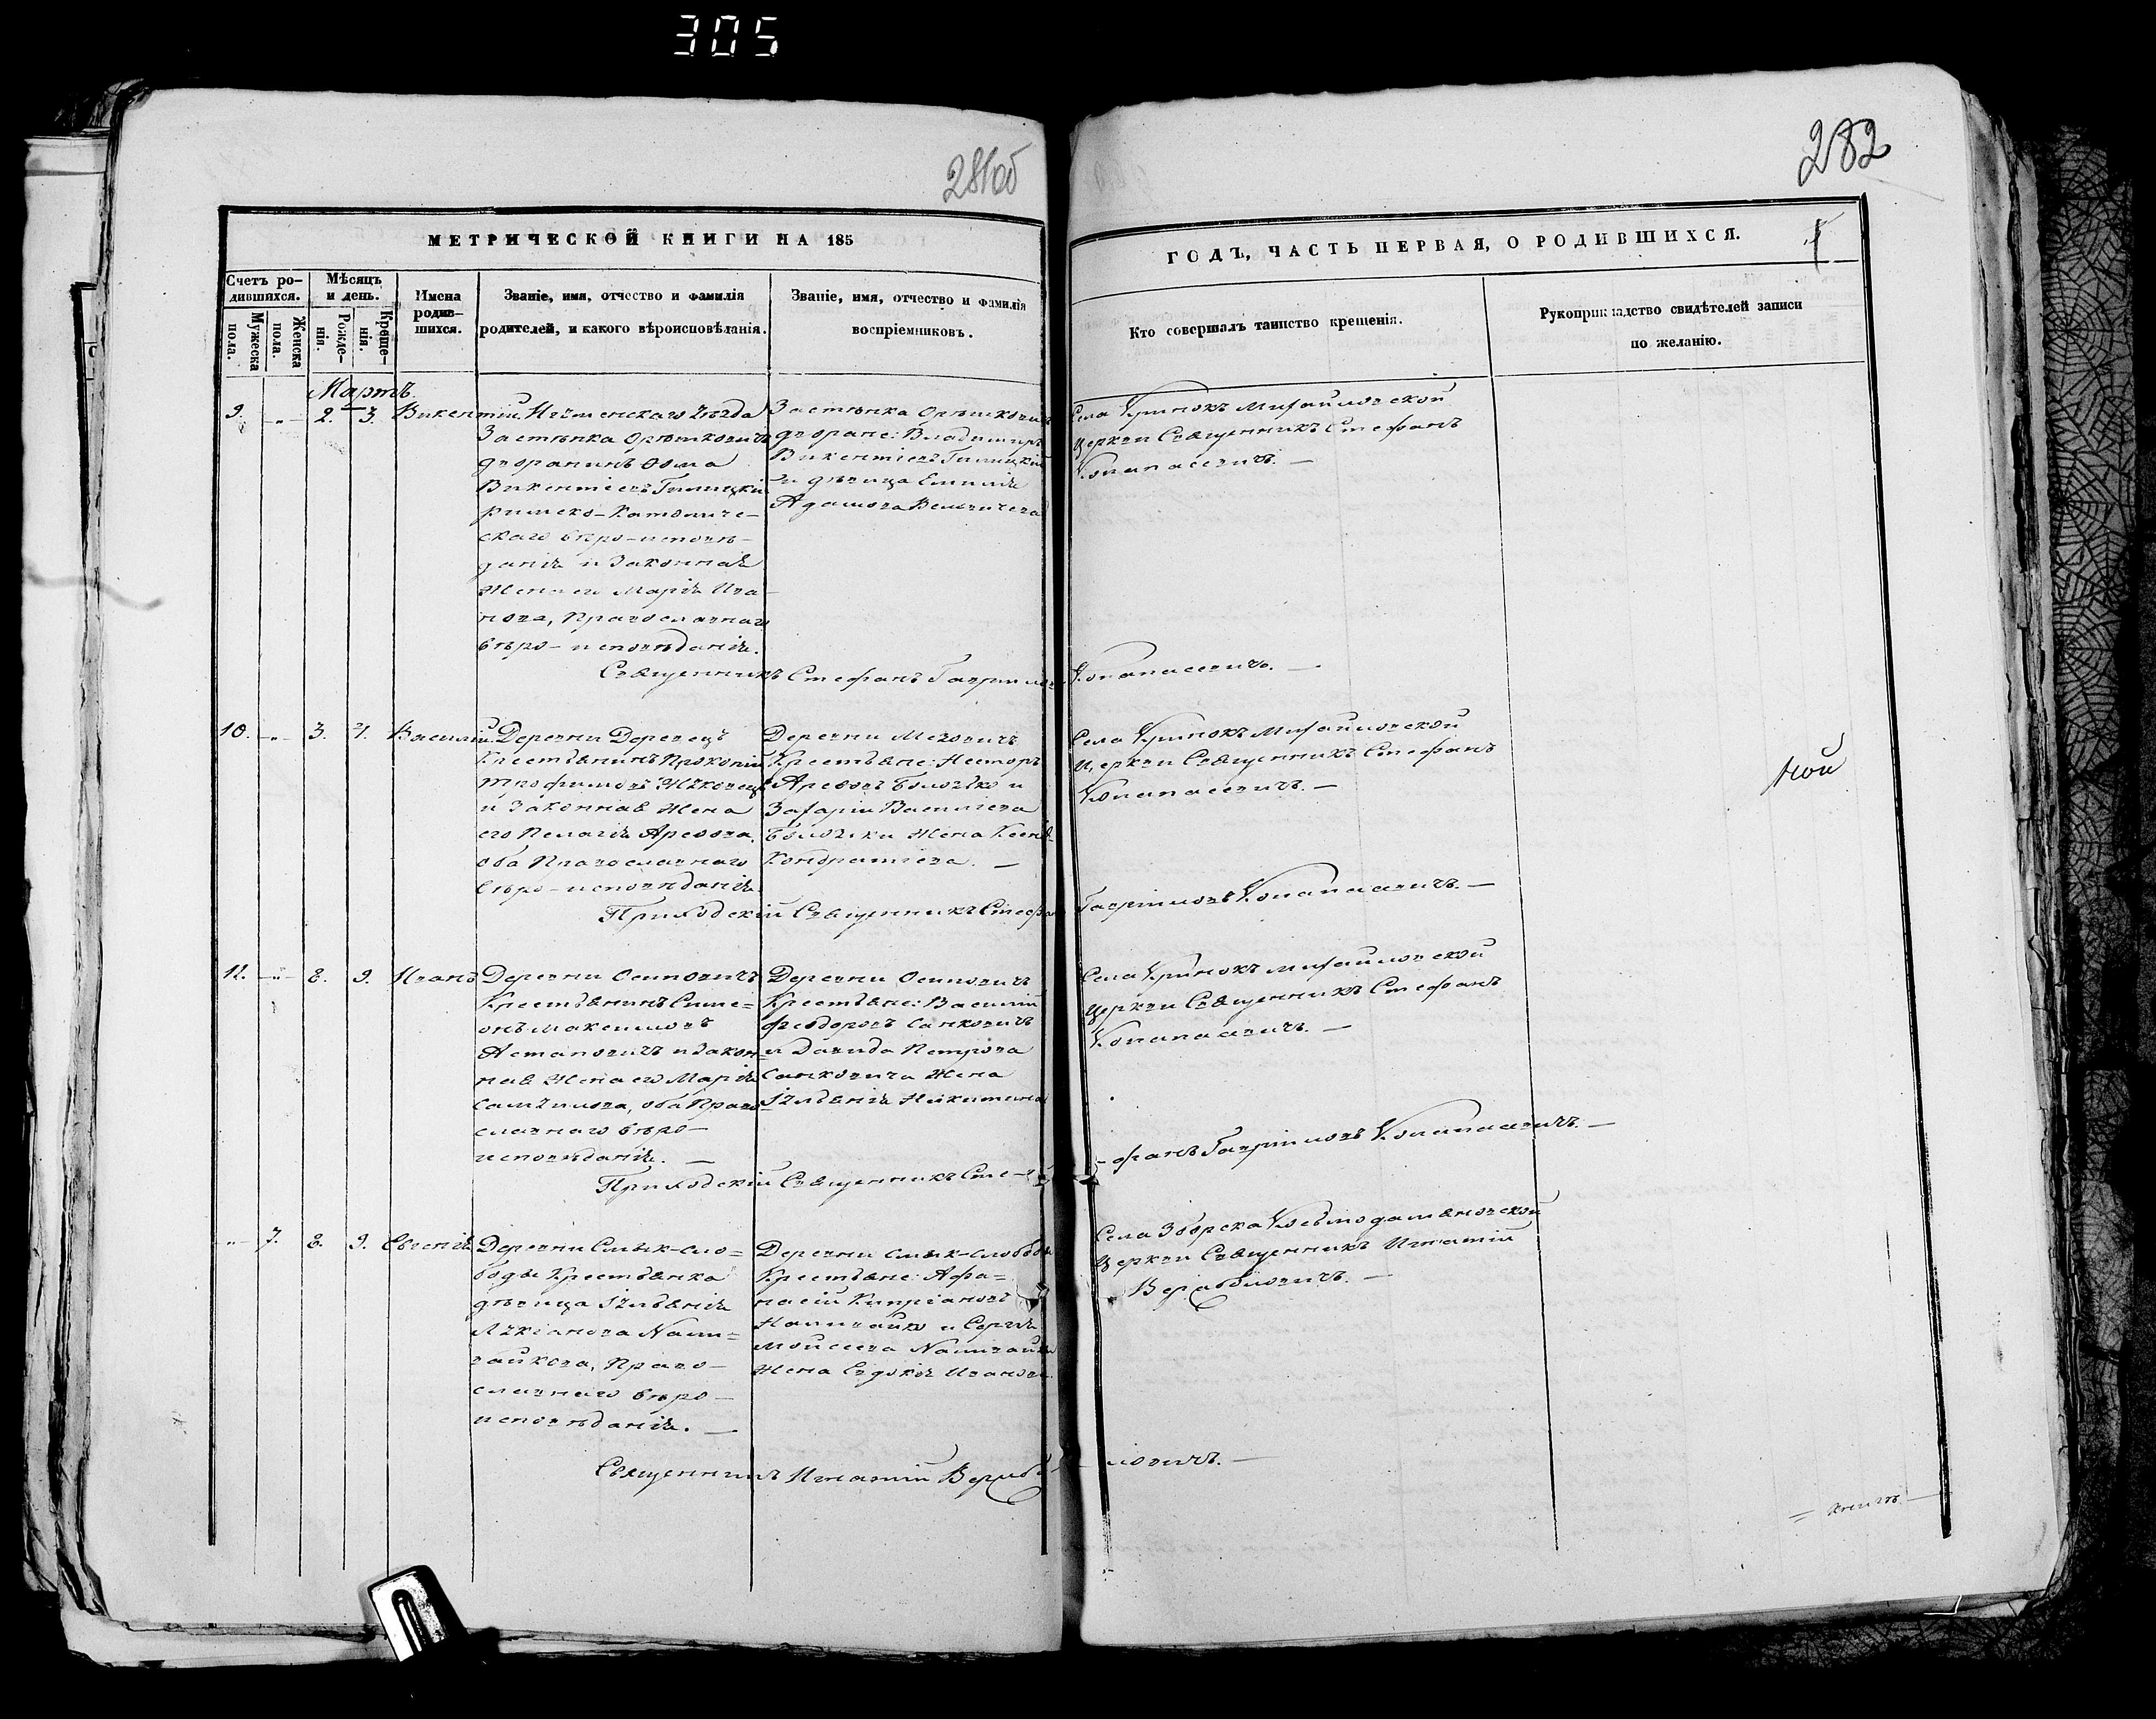 305
281об
282
МЕТРИЧЕСКОЙ КНИГИ НА 185
ГОДЪ, ЧАСТЬ ПЕРВАЯ, О РОДИВШИХСЯ.
Счетъ ро-
дившихся.
Мужеска
пола.
Женска
пола.
Мѣсяцъ
и день.
Рожде-
нія.
Креще-
нія.
Имена
родив-
шихся.
Званіе, имя, отчество и фамилія
родителей, и какого вѣроисповѣданія.
Званіе, имя, отчество и фамилія
воспріемниковъ.
Кто совершалъ таинство крещенія.
Рукоприкладство свидѣтелей записи
по желанію.
Мартъ.
9. 2. 3. Викентій
Игуменскаго уѣзда
Застѣнка Орѣшковичъ
дворянинъ Ѳома
Викентіевъ
Римско-Католиче-
скаго вѣро-исповѣ-
данія и законная
Жена его Марія Ива-
нова, Православнаго
вѣро-исповѣданія.
Застѣнка Орѣшковичъ
дворяне: Владимиръ
Викентіевъ
и дѣвица Емилія
Адамова
Села Кринокъ Михайловской
церкви Священникъ Стефанъ
Конапасевичъ. —
Священникъ Стефанъ Гавриловъ Конапасевичъ. —
10. 3. 4. Василій
Деревни Деревецъ
Крестьянинъ Прокопій
Трофимовъ
и законная Жена
его Пелагія Арефова,
оба Православнаго
вѣро-исповѣданія.
Деревни
Крестьяне: Несторъ
Арефовъ и
Захаріи Василіева
Жена Ксенія
Кондратіева. —
Села Кринокъ Михайловской
Церкви Священникъ Стефанъ
Конапасевичъ. —
Приходскій Священникъ Стефанъ Гавріиловъ Конапасевичъ. —
11. 8. 9. Иванъ
Деревни Осиповичъ
Крестьянинъ Симе=
онъ Максимовъ
Астаповичъ и закон=
ная Жена его Марія
Самуилова, оба Право=
славнаго вѣро-
исповѣданія. —
Деревни Осиповичъ
Крестьяне: Василій
Ѳеодоровъ Санковичъ
и Давида Петрова
Санковича Жена
Іуліанія Никитина
Села Кринокъ Михайловской
церкви Священникъ Стефанъ
Конапасевичъ. —
Приходскій Священникъ Сте-
-фанъ Гавріиловъ Конапасевичъ. —
7. 8. 9. Евгенія
Деревни Смык-сло=
боды Крестьянка
дѣвица Іуліанія
Лукіанова Нали=
вайкова, Право-
славнаго вѣро-
исповѣданія. —
Деревни Смык-слободы
Крестьяне: Афа=
насій Кипріановъ
Наливайко и Сергія
Моисеева Наливайки
Жена Евдокія Иванова
Села Зборска Косьмодаміановской
Церкви Священникъ Игнатій
Священникъ Игнатій